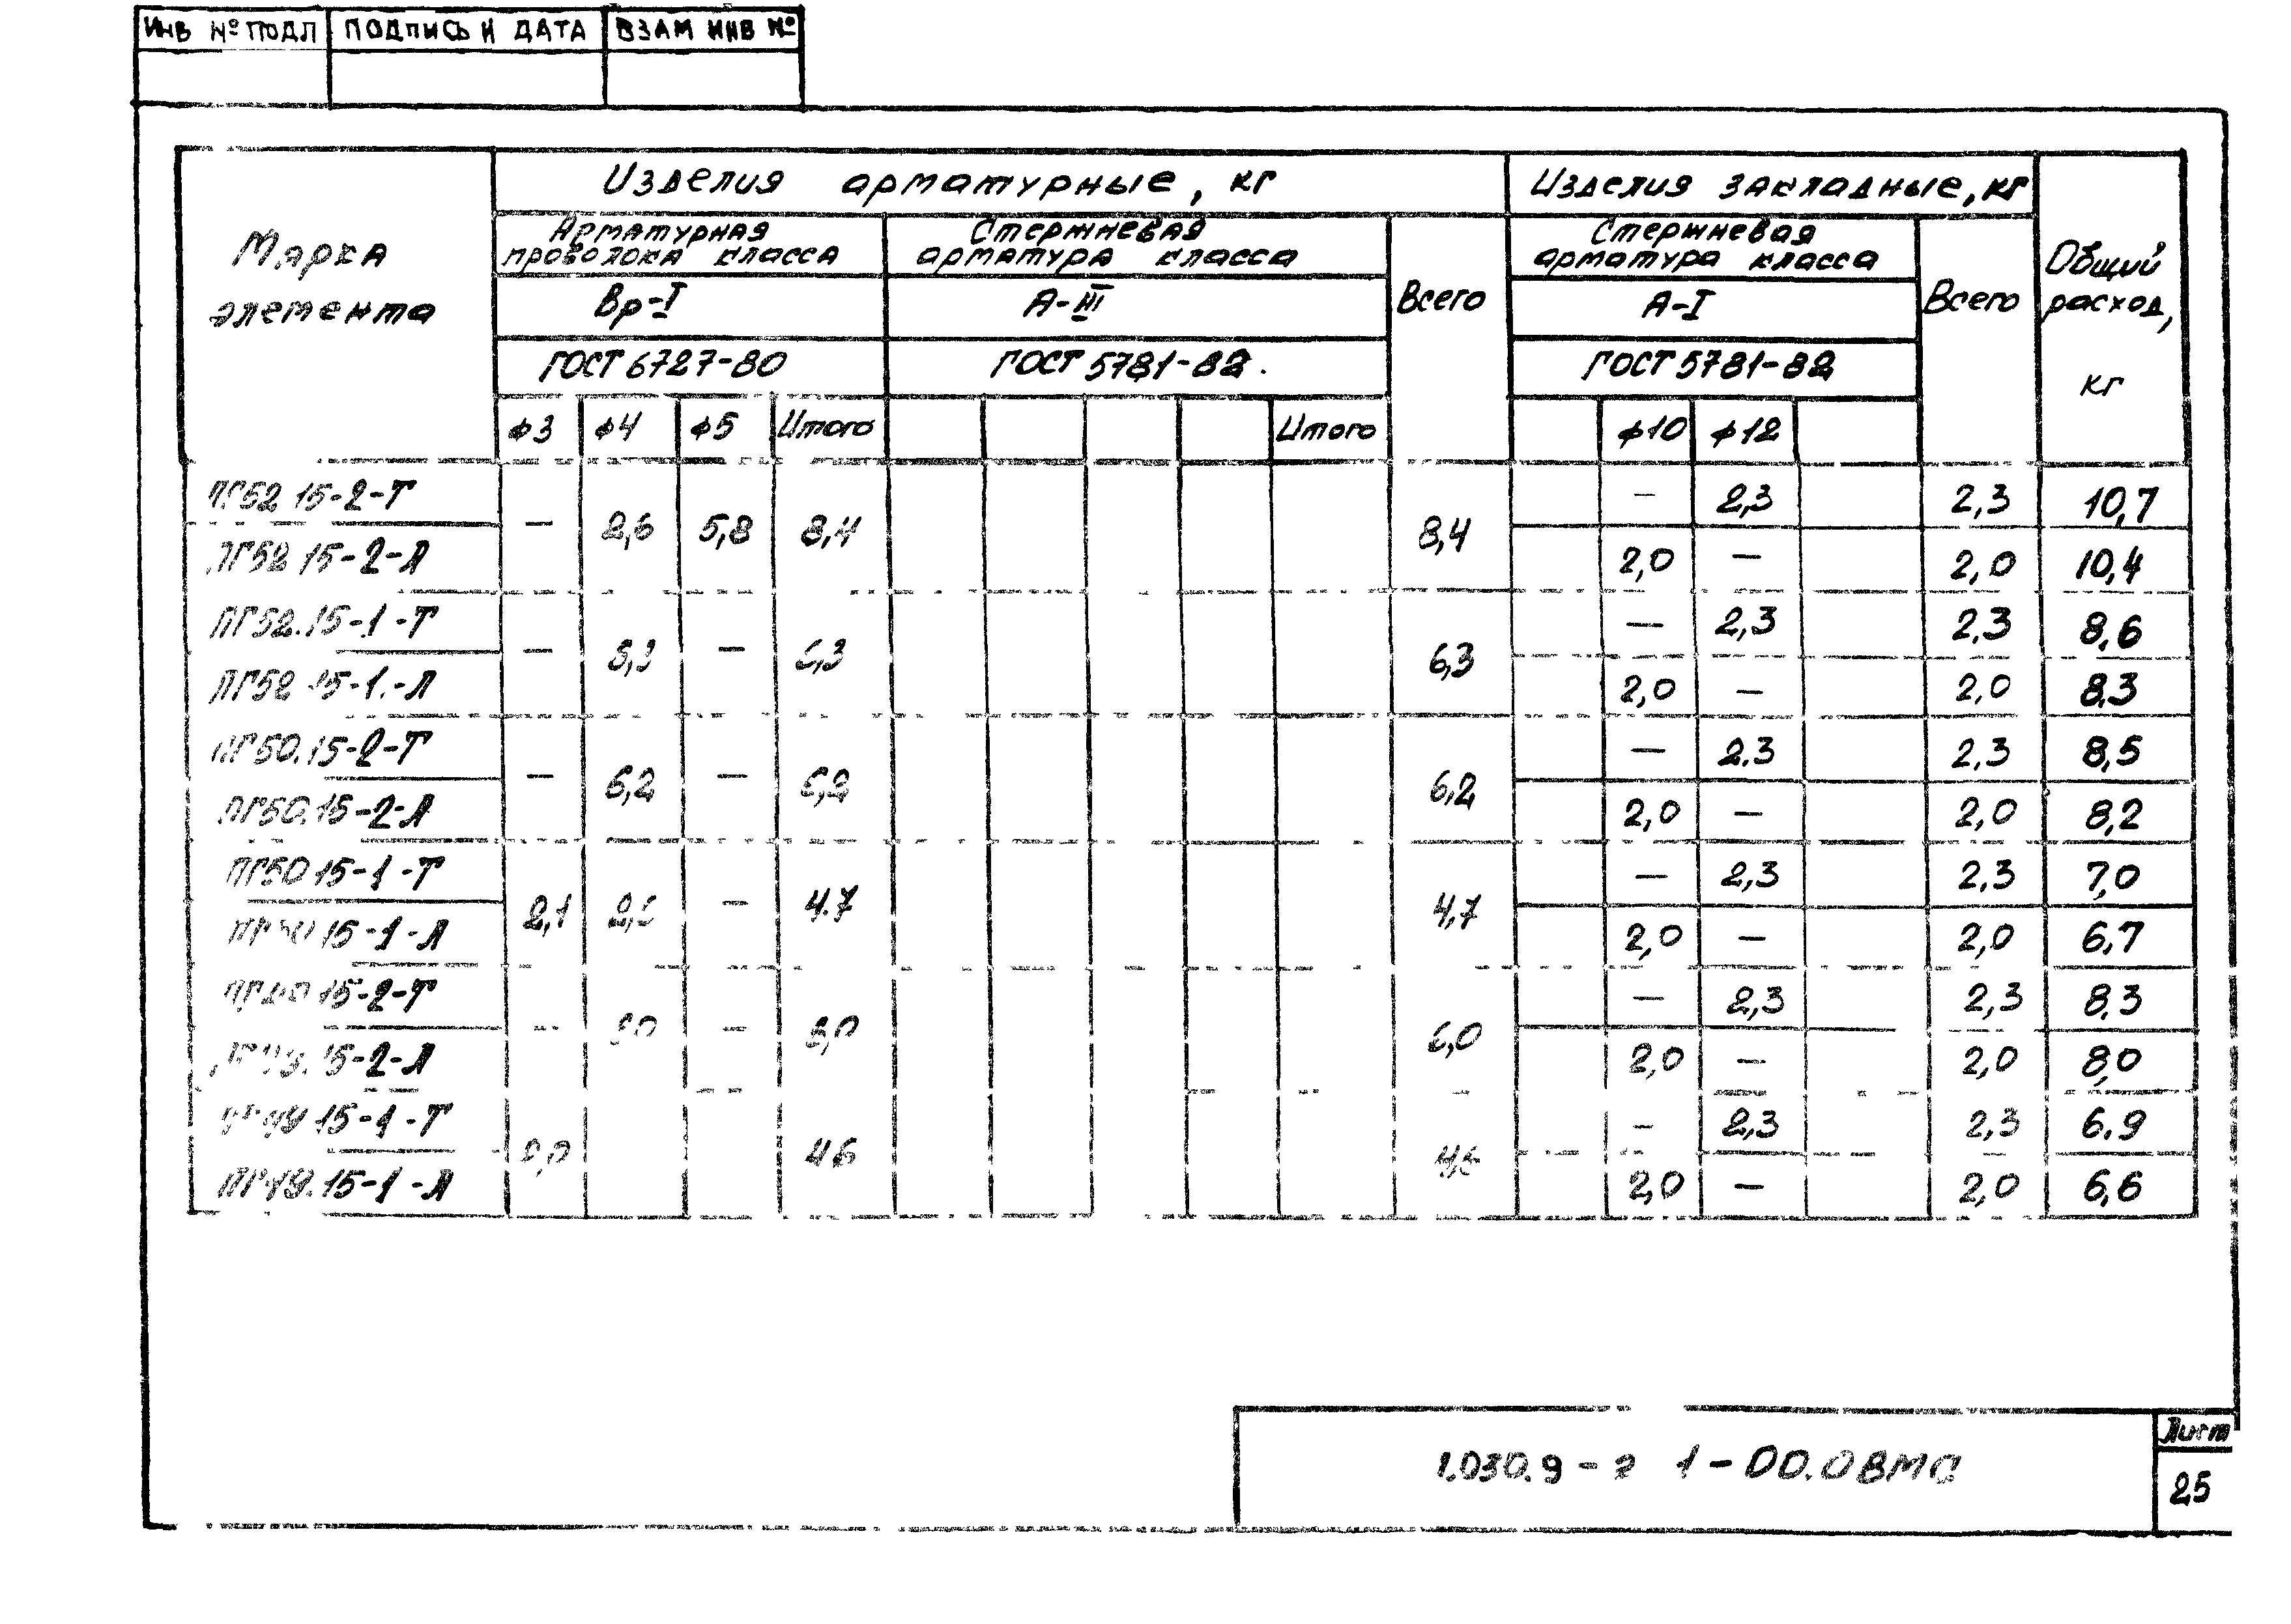 ИНВ № ПОДЛ ПОДПИСЬ И ДАТА ВЗАМ ИНВ №
Марка элемента
Изделия арматурные, кг
Изделия закладные, кг
Общий расход, кг
Арматурная проволока класса
Стержневая арматура класса
Всего
Стержневая арматура класса
Всего
Вр-I
А-III
А-I
ГОСТ 6727-80
ГОСТ 5781-82
ГОСТ 5781-82
ф3 ф4 ф5 Итого Итого ф10 ф12
ПГ52 15-2-Т — 2,6 5,8 8,4 8,4 — 2,3 2,3 10,7
ПГ52 15-2-Л 2,0 — 2,0 10,4
ПГ52.15-1-Т — — 6,3 6,3 — 2,3 2,3 8,6
ПГ52 15-1.-Л 2,0 — 2,0 8,3
ПГ50.15-2-Т — 6,2 — 6,2 6,2 — 2,3 2,3 8,5
ПГ50.15-2-Л 2,0 — 2,0 8,2
ПГ50 15-1-Т 2,1 — 4,7 4,7 — 2,3 2,3 7,0
ПГ50 15-1-Л 2,0 — 2,0 6,7
15-2-Т — — 6,0 — 2,3 2,3 8,3
15-2-Л 2,0 — 2,0 8,0
15-1-Т 4,6 — 2,3 2,3 6,9
ПГ49.15-1-Л 2,0 — 2,0 6,6
1.030.9-2 1-00.0 ВМС
Лист
25